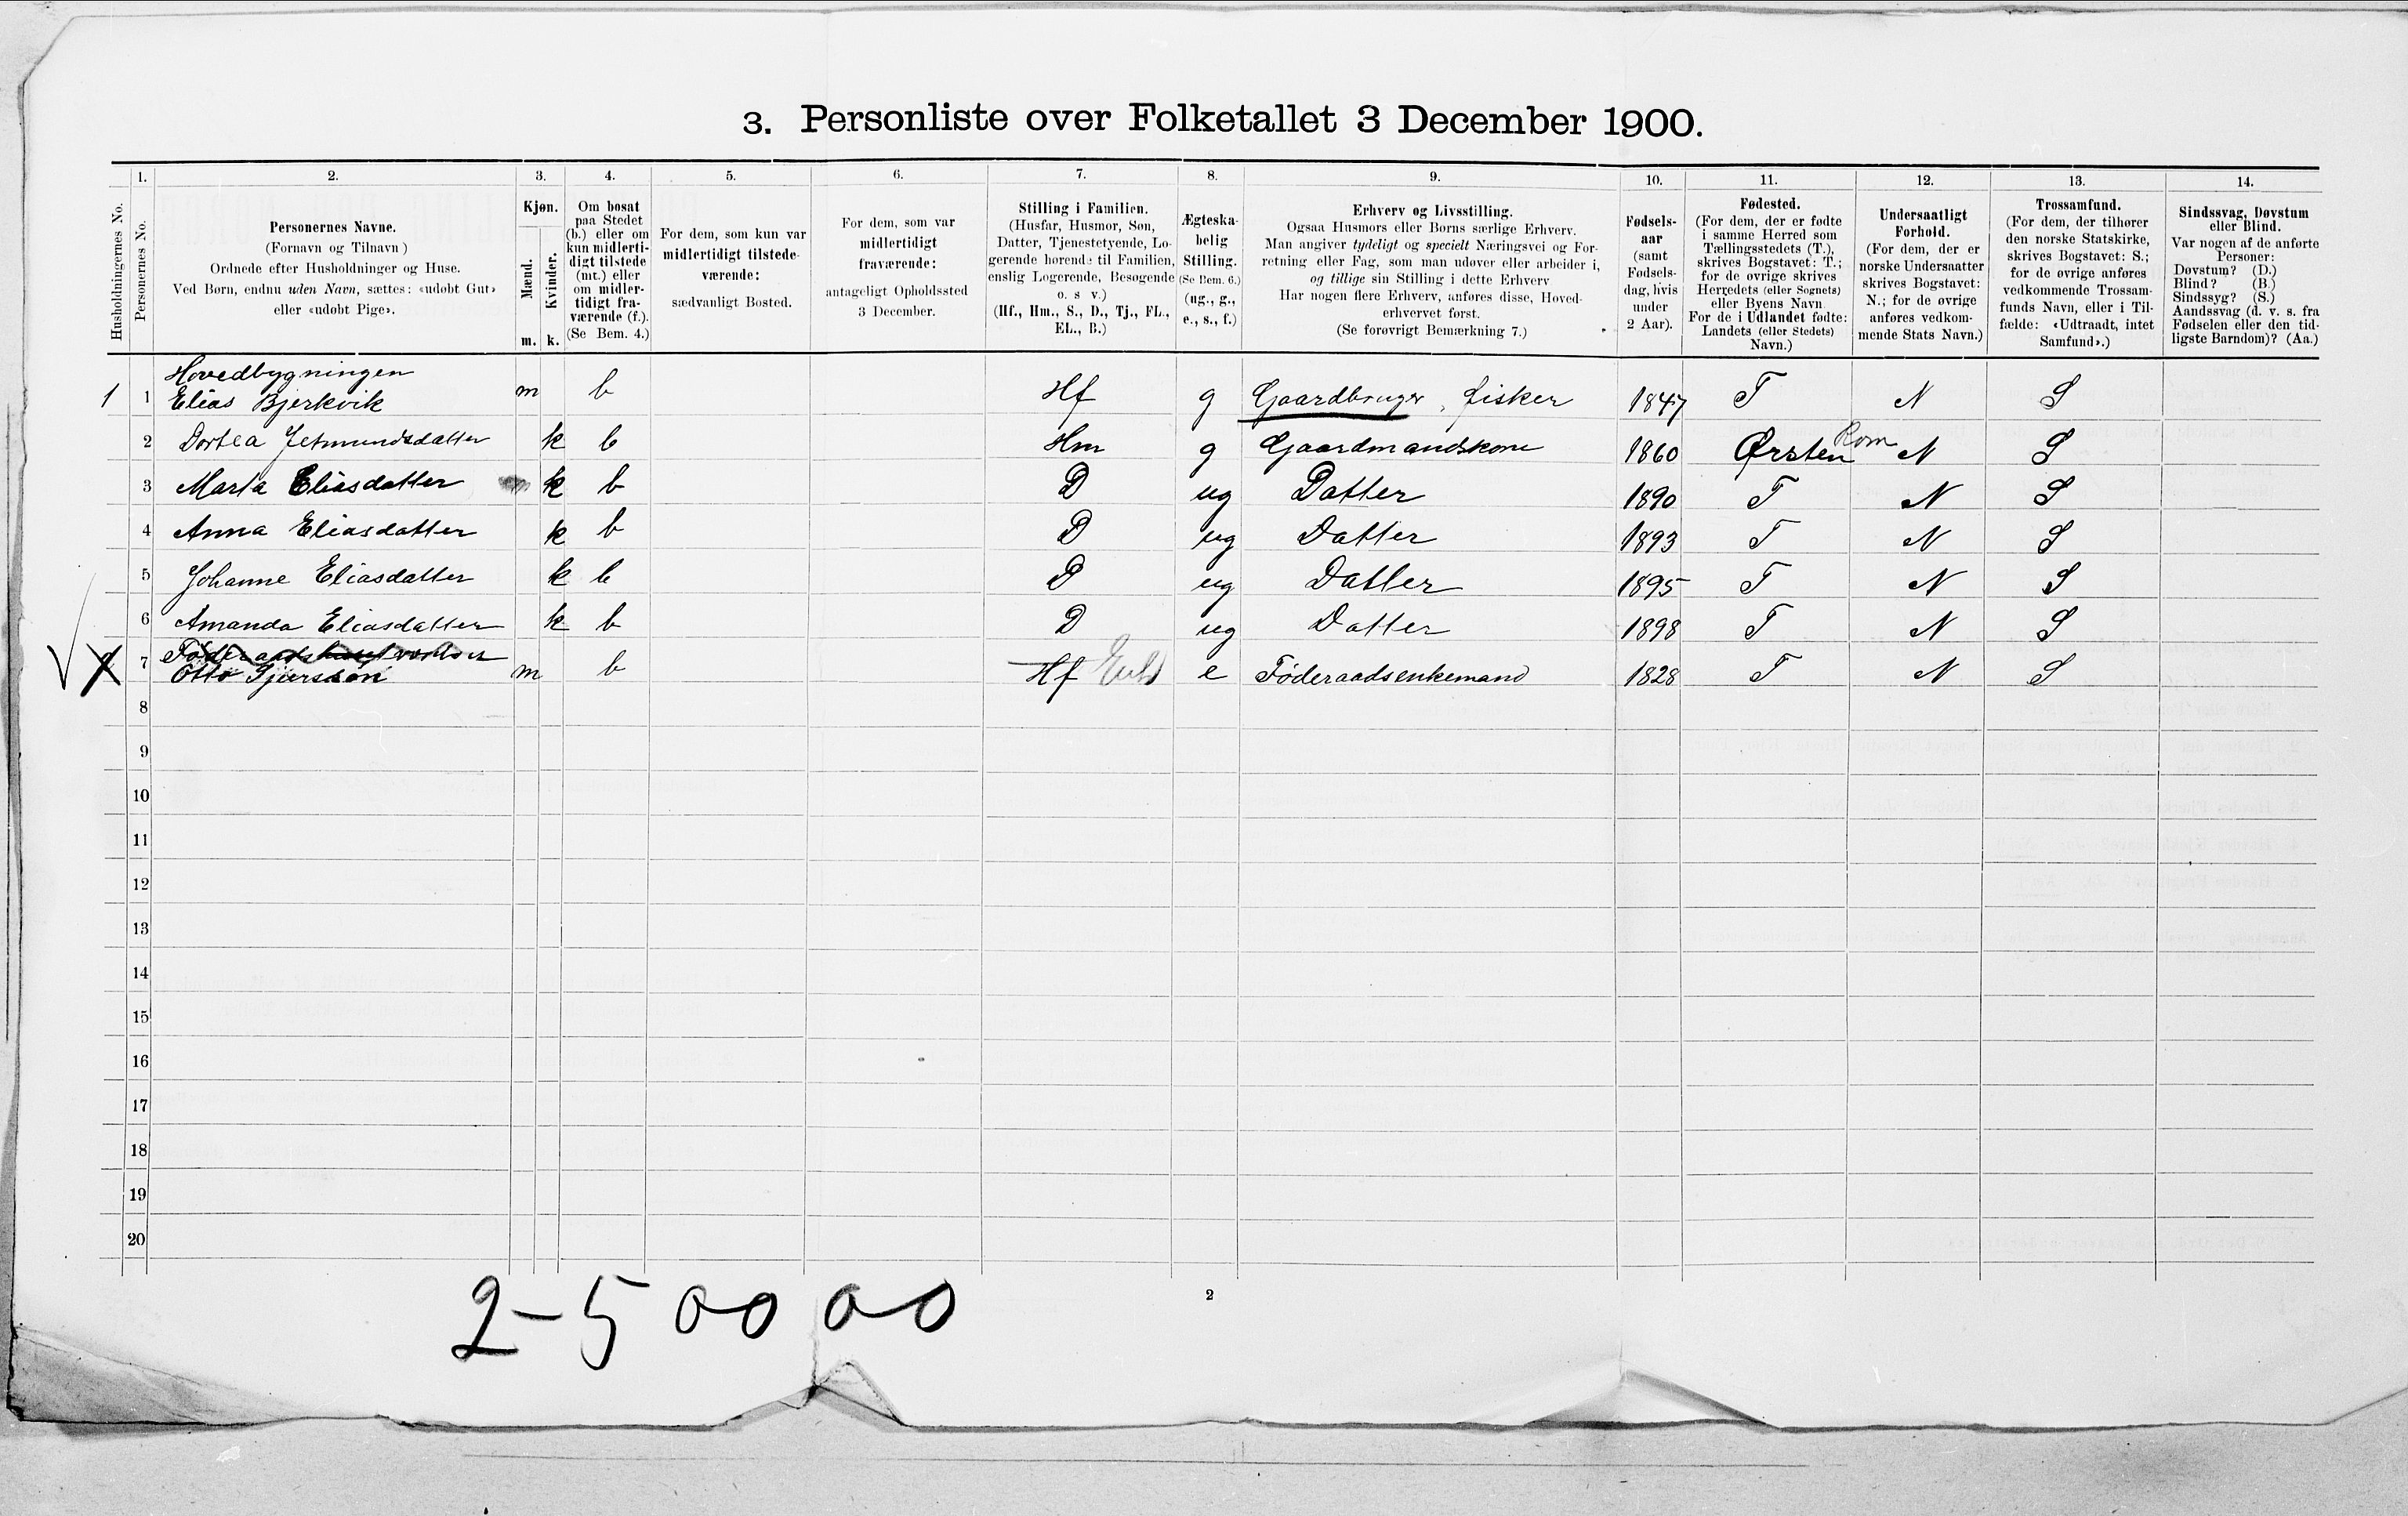 3. Personliste over Folketallet 3 December 1900.
1. 2. 3. 4. 5. 6. 7. 8. 9. 10. 11. 12. 13. 14.
Husholdningernes No.
Personernes No.
Personernes Navne.
(Fornavn og Tilnavn)
Ordnede efter Husholdninger og Huse.
Ved Børn, endnu uden Navn, sættes: «udøbt Gut»
eller «udøbt Pige».
Kjøn.
Mænd.
Kvinder.
m. k.
Om bosat
paa Stedet
(b.) eller om
kun midlerti-
digt tilstede
(mt.) eller
om midler-
tidigt fra-
værende (f.).
(Se Bem. 4.)
For dem, som kun var
midlertidigt tilstede-
værende:
sædvanligt Bosted.
For dem, som var
midlertidigt
fraværende:
antageligt Opholdssted
3 December.
Stilling i Familien.
(Husfar, Husmor, Søn,
Datter, Tjenestetyende, Lo-
gerende hørende til Familien,
enslig Logerende, Besøgende
o. s v.)
(Hf., Hm., S., D., Tj., FL.,
EL., B.)
Ægteska-
belig
Stilling.
(Se Bem. 6.)
(ug., g.,
e., s., f.)
Erhverv og Livsstilling.
Ogsaa Husmors eller Børns særlige Erhverv.
Man angiver tydeligt og specielt Næringsvei og For-
retning eller Fag, som man udøver eller arbeider i,
og tillige sin Stilling i dette Erhverv
Har nogen flere Erhverv, anføres disse, Hoved-
erhvervet først.
(Se forøvrigt Bemærkning 7.)
Fødsels-
aar
(samt
Fødsels-
dag, hvis
under
2 Aar).
Fødested.
(For dem, der er fødte
i samme Herred som
Tællingsstedets (T.),
skrives Bogstavet: T.;
for de øvrige skrives
Herredets (eller Sognets)
eller Byens Navn.
For de i Udlandet fødte:
Landets (eller Stedets)
Navn.)
Undersaatligt
Forhold.
(For dem, der er
norske Undersaatter
skrives Bogstavet:
N.; for de øvrige
anføres vedkom-
mende Stats Navn.)
Trossamfund.
(For dem, der tilhører
den norske Statskirke,
skrives Bogstavet: S.;
for de øvrige anføres
vedkommende Trossam-
funds Navn, eller i Til-
fælde: «Udtraadt, intet
Samfund».)
Sindssvag, Døvstum
eller Blind.
Var nogen af de anførte
Personer:
Døvstum? (D.)
Blind? (B.)
Sindssyg? (S.)
Aandssvag (d. v. s. fra
Fødselen eller den tid-
ligste Barndom)? (Aa.)
Hovedbygningen
1 1 Elias Bjerkvik m b Hf g Gaardbruger, fisker 1847 T N S
2 Dortea Jetmundsdatter k b Hm g Gaardmandskone 1860 Ørsten Rom N S
3 Marta Eliasdatter k b D ug Datter 1890 T N S
4 Anna Eliasdatter k b D ug Datter 1893 T N S
5 Johanne Eliasdatter k b D ug Datter 1895 T N S
6 Amanda Eliasdatter k b D ug Datter 1898 T N S
7 Otto Sjursson m b Hf e Føderaadsenkemand 1828 T N S
8
9
10
11
12
13
14
15
16
17
18
19
20
2-50000
2